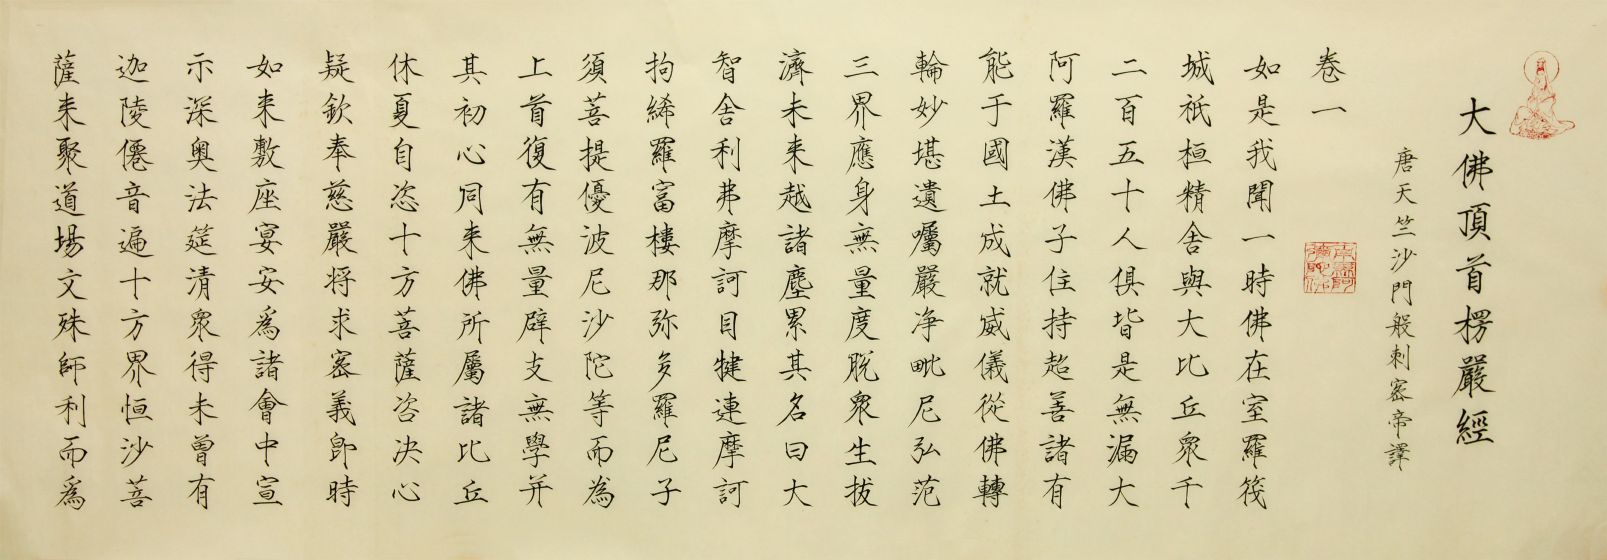 大佛頂首楞嚴經
唐天竺沙門般剌密帝譯
卷一
如是我聞一時佛在室羅筏
城祇桓精舍與大比丘眾千
二百五十人俱皆是無漏大
阿羅漢佛子住持超善諸有
能于國土成就威儀從佛轉
輪妙堪遺囑嚴淨毗尼弘范
三界應身無量度脫眾生拔
濟未来越諸塵累其名曰大
智舍利弗摩訶目犍連摩訶
拘絺羅富樓那弥多羅尼子
須菩提優波尼沙陀等而為
上首復有無量辟支無學并
其初心同来佛所屬諸比丘
休夏自恣十方菩薩咨决心
疑欽奉慈嚴将求密義即時
如来敷座宴安爲諸會中宣
示深奥法筵清眾得未曾有
迦陵僊音遍十方界恒沙菩
薩来聚道場文殊師利而爲
南無阿彌陀佛